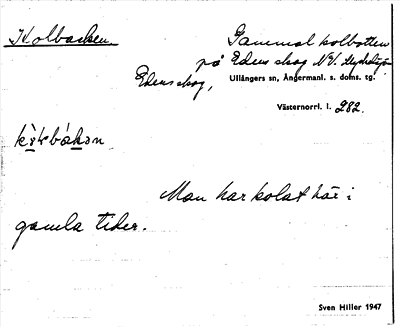 Kolbacken
Gammal kolbotten
på Edens skog NV.
Edens skog,
Ullångers sn, Ångermanl. s. doms. tg.
Västernorrl. l. 282.
Man har kolat här i
gamla tider.
Sven Hiller 1947